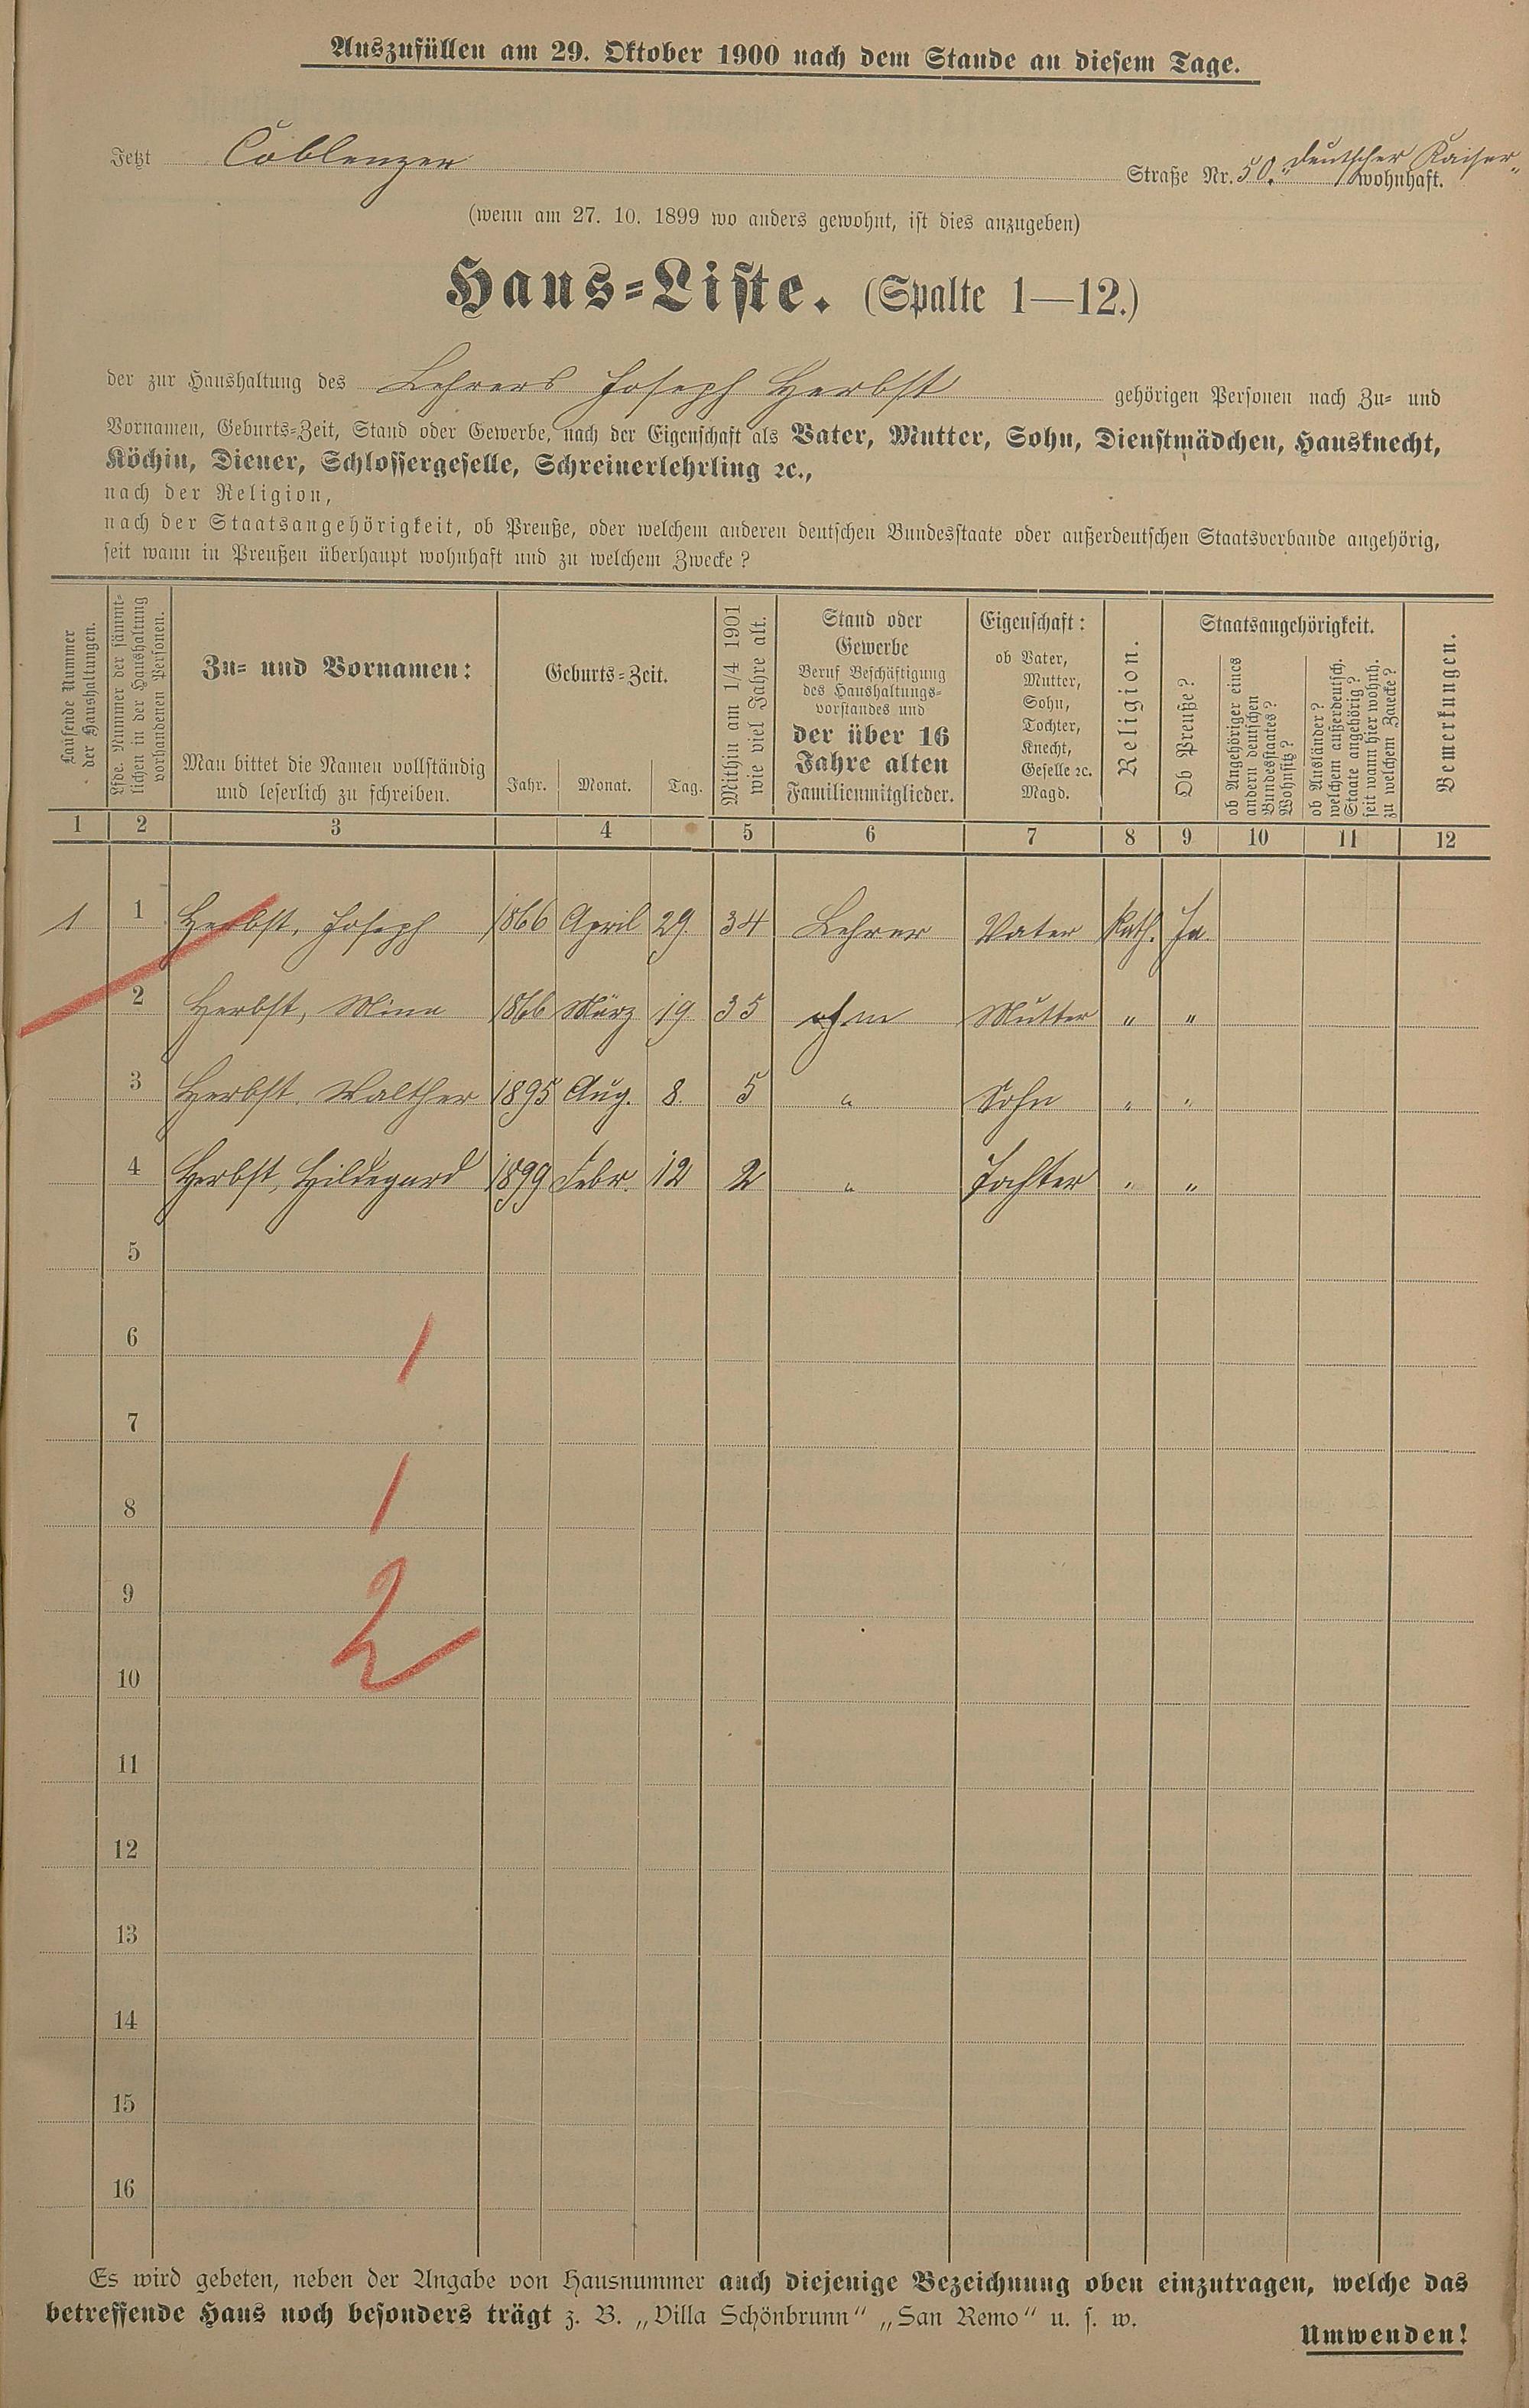 Auszufüllen am 29. Oktober 1900 nach dem Stande an diesem Tage.
Jetzt Coblenzer Straße Nr. 50. „Deutscher Kaiser„ wohnhaft.
(wenn am 27. 10. 1899 wo anders gewohnt, ist dies anzugeben)
Haus-Liste. (Spalte 1—12.)
der zur Haushaltung des Lehrers Joseph Herbst gehörigen Personen nach Zu- und
Vornamen, Geburts-Zeit, Stand oder Gewerbe, nach der Eigenschaft als Vater, Mutter, Sohn, Dienstmädchen, Hausknecht,
Köchin, Diener, Schlossergeselle, Schreinerlehrling ꝛc.,
nach der Religion,
nach der Staatsangehörigkeit, ob Preuße, oder welchem anderen deutschen Bundesstaate oder außerdeutschen Staatsverbande angehörig,
seit wann in Preußen überhaupt wohnhaft und zu welchem Zwecke?
Laufende Nummer
der Haushaltungen.
Lfde. Nummer der sämmt-
lichen in der Haushaltung
vorhandenen Personen.
Zu- und Vornamen:
Man bittet die Namen vollständig
und leserlich zu schreiben.
Geburts-Zeit.
Jahr. Monat. Tag.
Mithin am 1/4 1901
wie viel Jahre alt.
Stand oder
Gewerbe
Beruf Beschäftigung
des Haushaltungs-
vorstandes und
der über 16
Jahre alten
Familienmitglieder.
Eigenschaft:
ob Vater,
Mutter,
Sohn,
Tochter,
Knecht,
Geselle ꝛc.
Magd.
Religion.
Staatsangehörigkeit.
Ob Preuße?
ob Angehöriger eines
andern deutschen
Bundesstaates?
Wohnsitz?
ob Ausländer?
welchem außerdeutsch.
Staate angehörig?
seit wann hier wohnh.
zu welchem Zwecke?
Bemerkungen.
1 2 3 4 5 6 7 8 9 10 11 12
1 1 Herbst, Joseph 1866 April 29. 34 Lehrer Vater Kath. Ja.
2 Herbst, Mina 1866 März 19. 35 Mutter " "
3 Herbst, Walther 1895 Aug. 8. 5 " Sohn " "
4 Herbst, Hildegard 1899 Febr. 12 2 " Tochter " "
5
6
1
7
8
1
9
2
10
11
12
13
14
15
16
Es wird gebeten, neben der Angabe von Hausnummer auch diejenige Bezeichnung oben einzutragen, welche das
betreffende Haus noch besonders trägt z. B. „Villa Schönbrunn" „San Remo" u. s. w.
Umwenden!